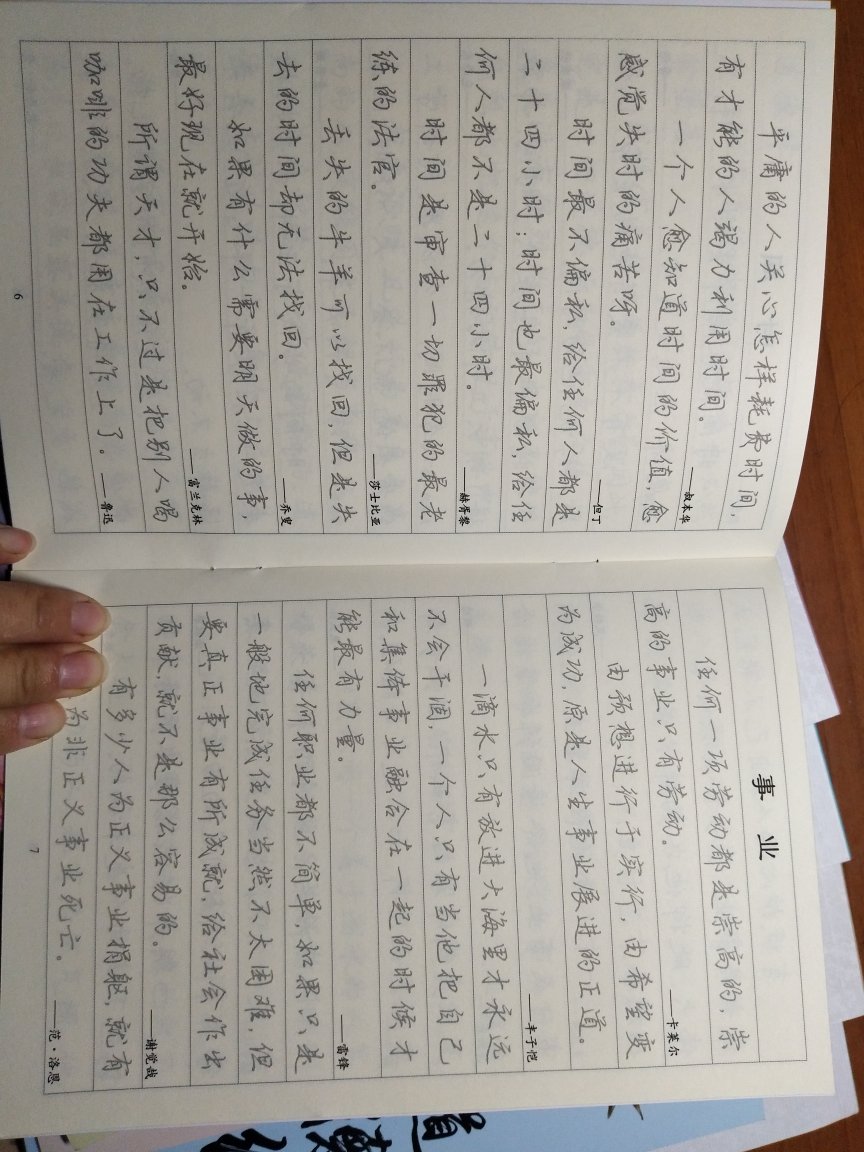 平庸的人关心怎样耗费时间，
有才能的人竭力利用时间。
——叔本华
一个人愈知道时间的价值，愈
感觉失时的痛苦呀。
——但丁
时间最不偏私，给任何人都是
二十四小时；时间也最偏私，给任
何人都不是二十四小时。
——赫胥黎
时间是审查一切罪犯的最老
练的法官。
——莎士比亚
丢失的牛羊可以找回，但是失
去的时间却无法找回。
——乔叟
如果有什么需要明天做的事，
最好现在就开始。
——富兰克林
所谓天才，只不过是把别人喝
咖啡的功夫都用在工作上了。——鲁迅
6
事业
任何一项劳动都是崇高的，崇
高的事业只有劳动。
——卡莱尔
由预想进行于实行，由希望变
为成功，原是人生事业展进的正道。
——丰子恺
一滴水只有放进大海里才永远
不会干涸，一个人只有当他把自己
和集体事业融合在一起的时候才
能最有力量。
——雷锋
任何职业都不简单，如果只是
一般地完成任务当然不太困难，但
要真正事业有所成就，给社会作出
贡献，就不是那么容易的。
——谢觉哉
有多少人为正义事业捐躯，就有
为非正义事业死亡。
——范·洛恩
7